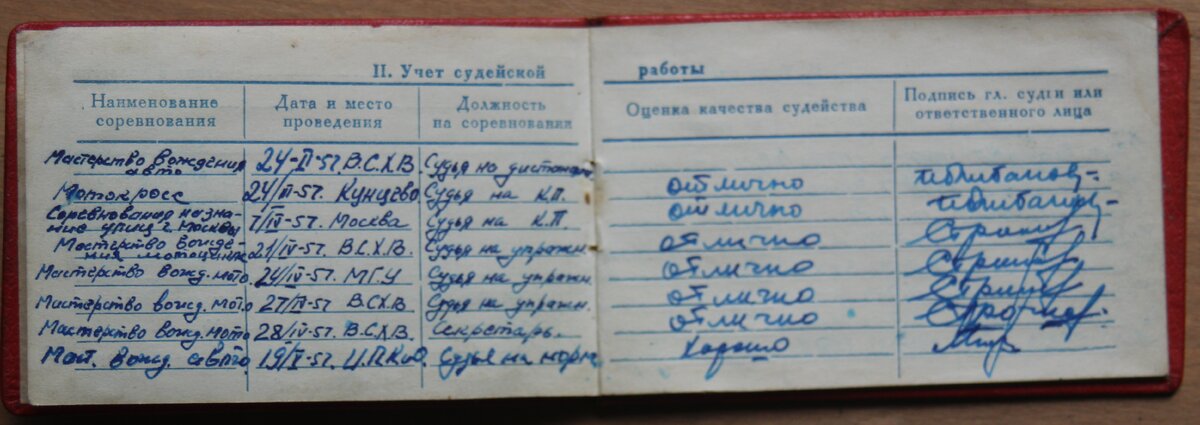 II. Учет судейской работы
Наименование соревнования
Дата и место проведения
Должность на соревновании
Оценка качества судейства
Подпись гл. судьи или ответственного лица
Мастерство вождения авто 24-II-57. В.С.Х.В. Судья на
Мотокросс 24/III-57. Кунцево Судья на К.П. отлично
Соревнования на знание улиц г. Москвы 7/IV-57. Москва Судья на К.П. отлично
Мастерство вожде- 21/IV-57. В.С.Х.В. Судья на упражн. отлично
Мастерство вожд. мото 24/IV-57. МГУ Судья на упражн. отлично
Мастерство вожд. мото 27/IV-57 В.С.Х.В. Судья на упражн. отлично
Мастерство вожд. мото 28/IV-57. В.С.Х.В. Секретарь. отлично
Маст. вожд. авто. 19/V-57. Ц.П.К.и.О. Судья на хорошо